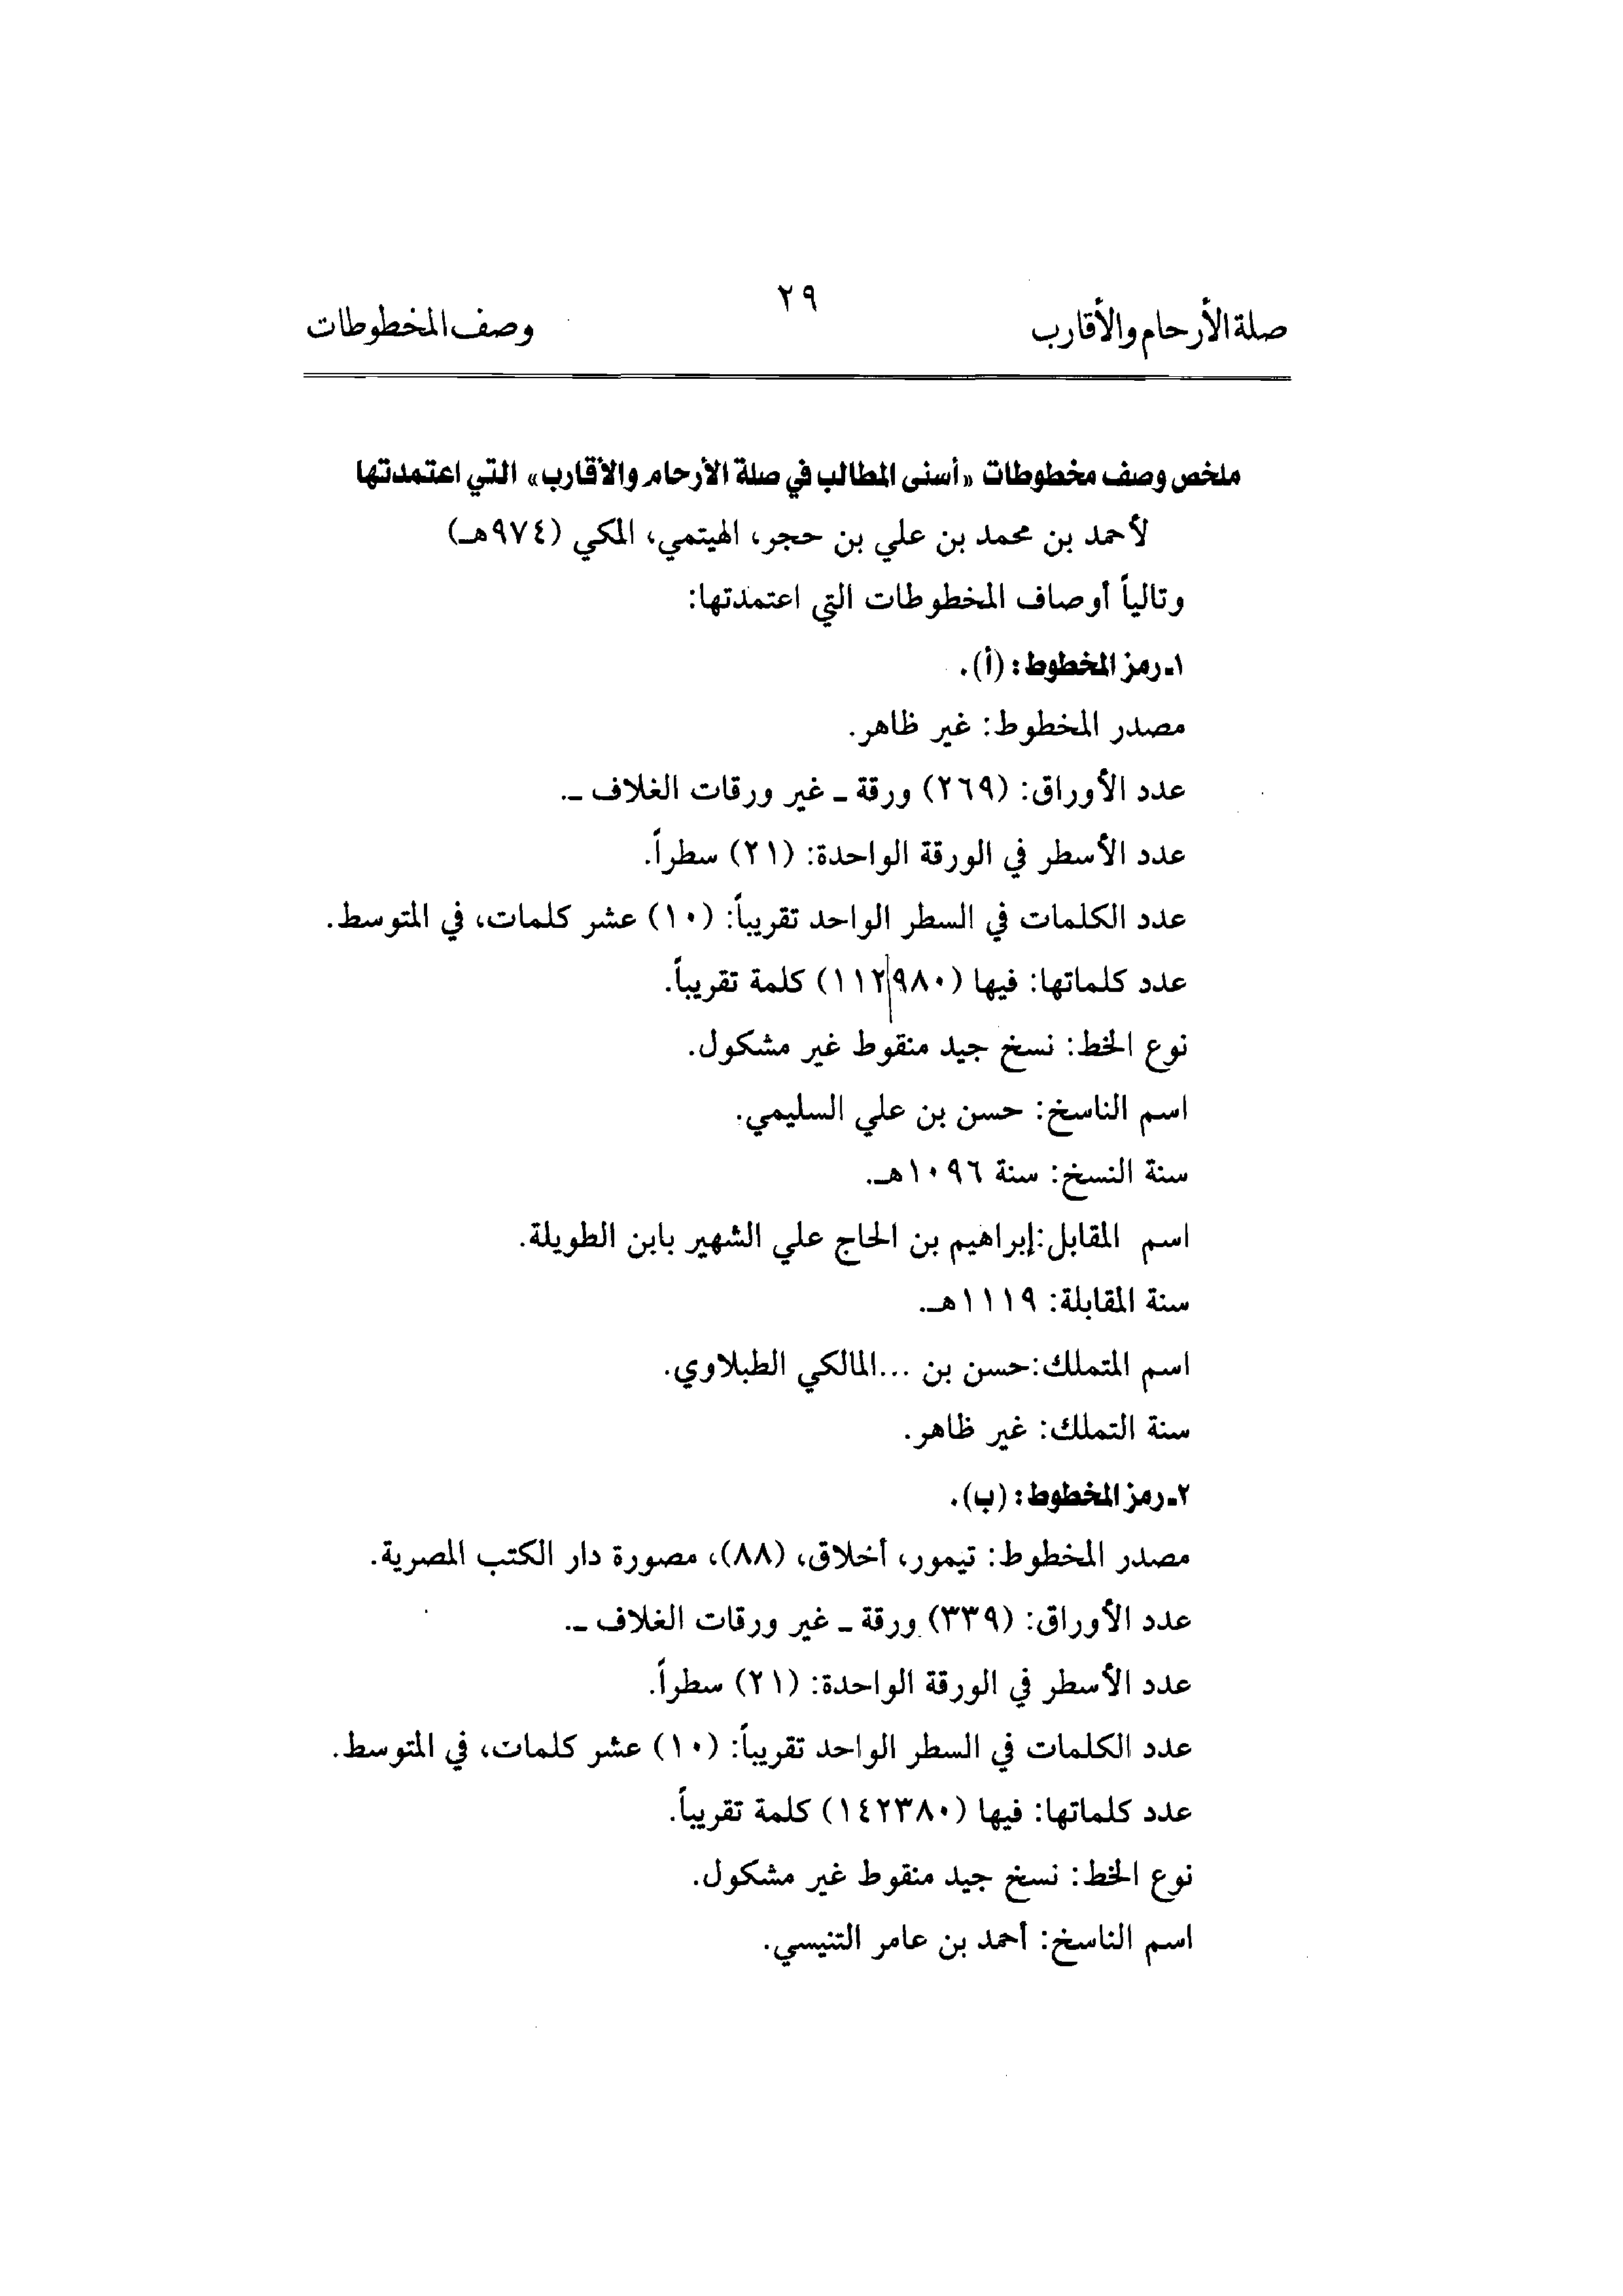 صلة الأرحام والأقارب ٢٩ وصف المخطوطات
ملخص وصف مخطوطات «أسنى المطالب في صلة الأرحام والأقارب» التي اعتمدتها
لأحمد بن محمد بن علي بن حجر، الهيتمي، المكي (٩٧٤هـ)
وتالياً أوصاف المخطوطات التي اعتمدتها:
١ـ رمز المخطوط: (أ).
مصدر المخطوط: غير ظاهر.
عدد الأوراق: (٢٦٩) ورقة ـ غير ورقات الغلاف ـ.
عدد الأسطر في الورقة الواحدة: (٢١) سطراً.
عدد الكلمات في السطر الواحد تقريباً: (١٠) عشر كلمات، في المتوسط.
عدد كلماتها: فيها (١١٢٩٨٠) كلمة تقريباً.
نوع الخط: نسخ جيد منقوط غير مشكول.
اسم الناسخ: حسن بن علي السليمي.
سنة النسخ: سنة ١٠٩٦هـ.
اسم المقابل:إبراهيم بن الحاج علي الشهير بابن الطويلة.
سنة المقابلة: ١١١٩هـ.
اسم المتملك:حسن بن ...المالكي الطبلاوي.
سنة التملك: غير ظاهر.
٢ـ رمز المخطوط: (ب).
مصدر المخطوط: تيمور، أخلاق، (٨٨)، مصورة دار الكتب المصرية.
عدد الأوراق: (٣٣٩) ورقة ـ غير ورقات الغلاف ـ.
عدد الأسطر في الورقة الواحدة: (٢١) سطراً.
عدد الكلمات في السطر الواحد تقريباً: (١٠) عشر كلمات، في المتوسط.
عدد كلماتها: فيها (١٤٢٣٨٠) كلمة تقريباً.
نوع الخط: نسخ جيد منقوط غير مشكول.
اسم الناسخ: أحمد بن عامر التنيسي.